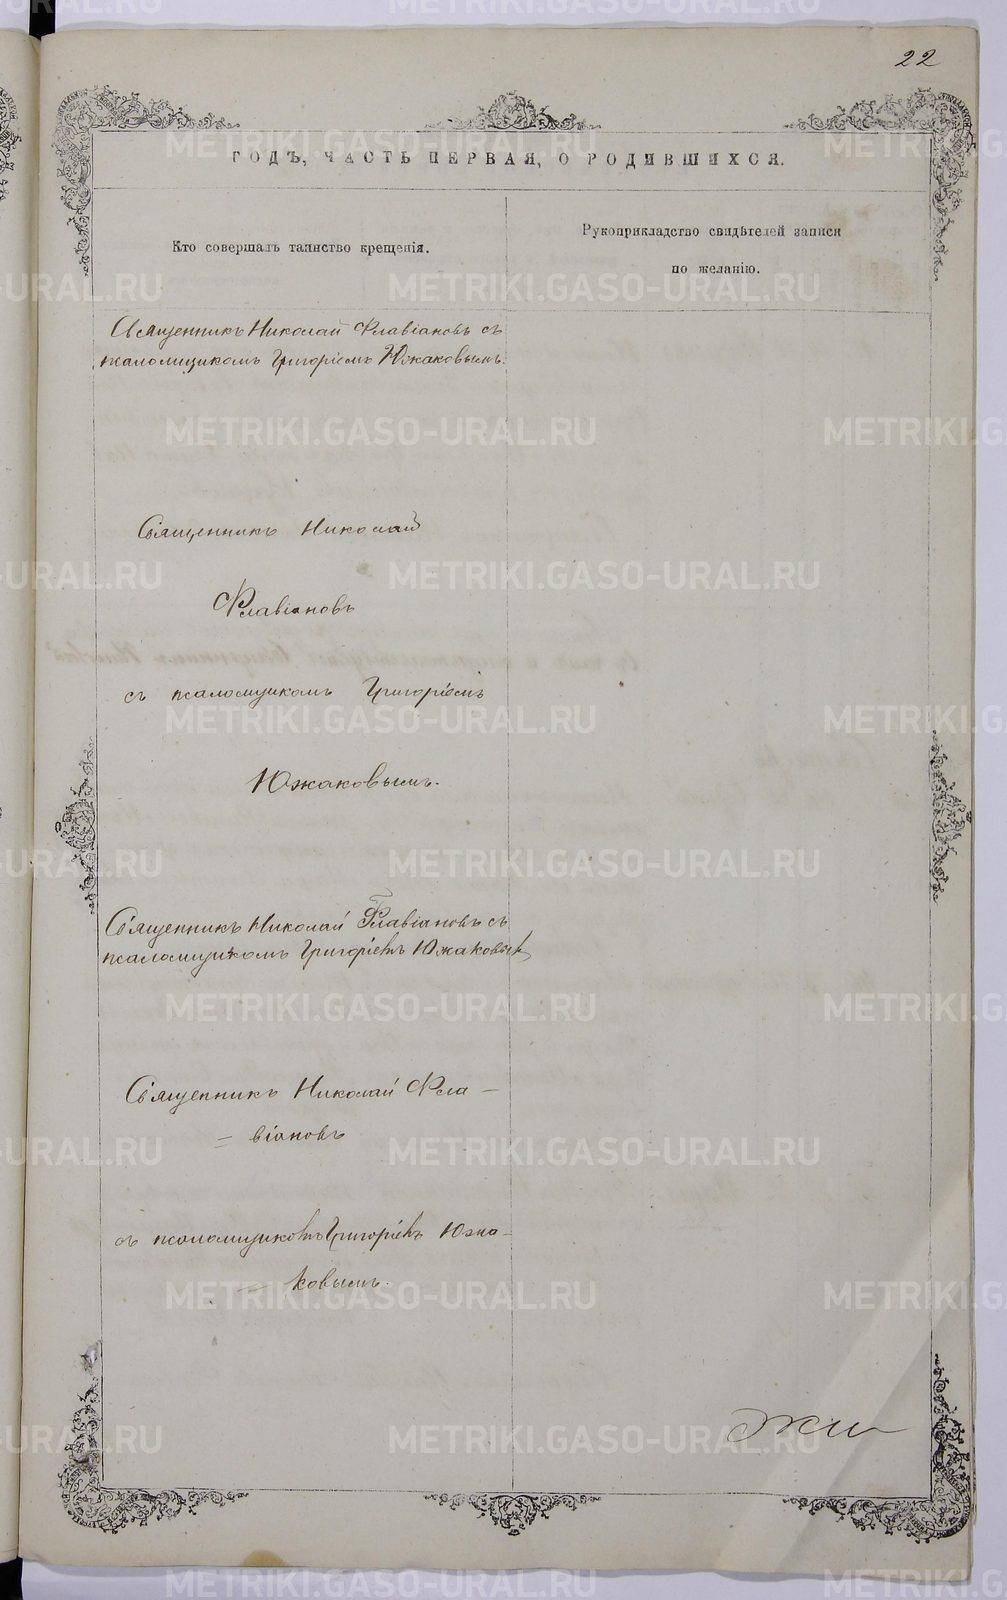 22
ГОДЪ, ЧАСТЬ ПЕРВАЯ, О РОДИВШИХСЯ.
Кто совершалъ таинство крещенія.
Рукоприкладство свидѣтелей записи
по желанію.
Священникъ Николай Флавіановъ съ
псаломщикомъ Григоріемъ Южаковымъ.
Священникъ Николай
Флавіановъ
съ псаломщикомъ Григоріемъ
Южаковымъ.
Священникъ Николай Флавіановъ съ
псаломщикомъ Григоріемъ Южаковым
Священникъ Николай Фла-
= віановъ
съ псаломщикомъ Григоріемъ Южа-
= ковымъ.
METRIKI.GASO-URAL.RU